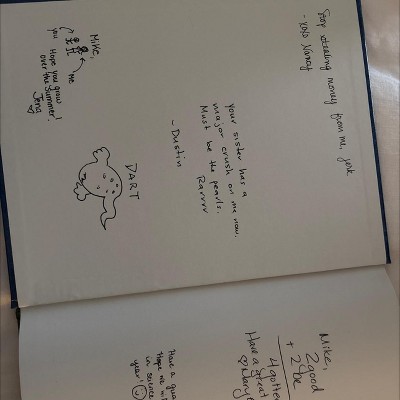 Stop stealing money from me, jerk
- xoxo Nancy
Your sister has a
major crush on me now.
Must be the pearls.
Rarrrr
~ Dustin
Mike,
me
you
Hope you grow
over the summer!
Jeng
DART
Mike,
2 good
+ 2 be
4 gotten
Have a great
Mary
Have a
Hope we
in science
year!